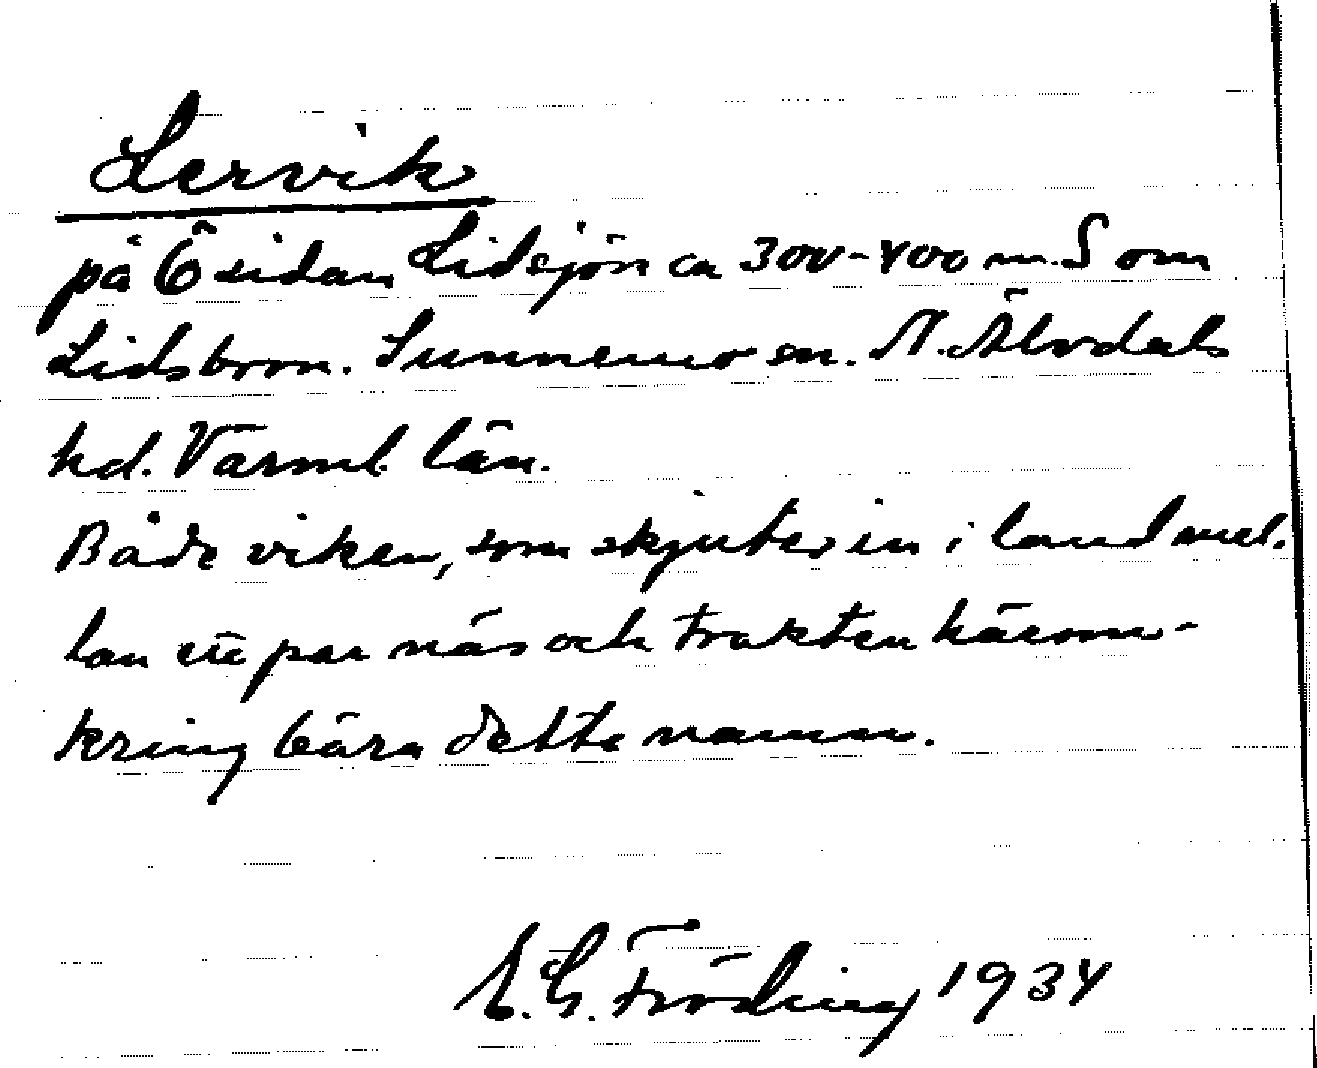 Lervik
på Ö sidan Lidsjön ca 300-400 m. S om
Lidsbron. Sunnemo sn. N. Älvdals
hd. Värml. län.
Både viken, som skjuter in i land mel-
lan ett par näs och trakten härom-
kring bära detta namn.
E. G. Fröding 1934